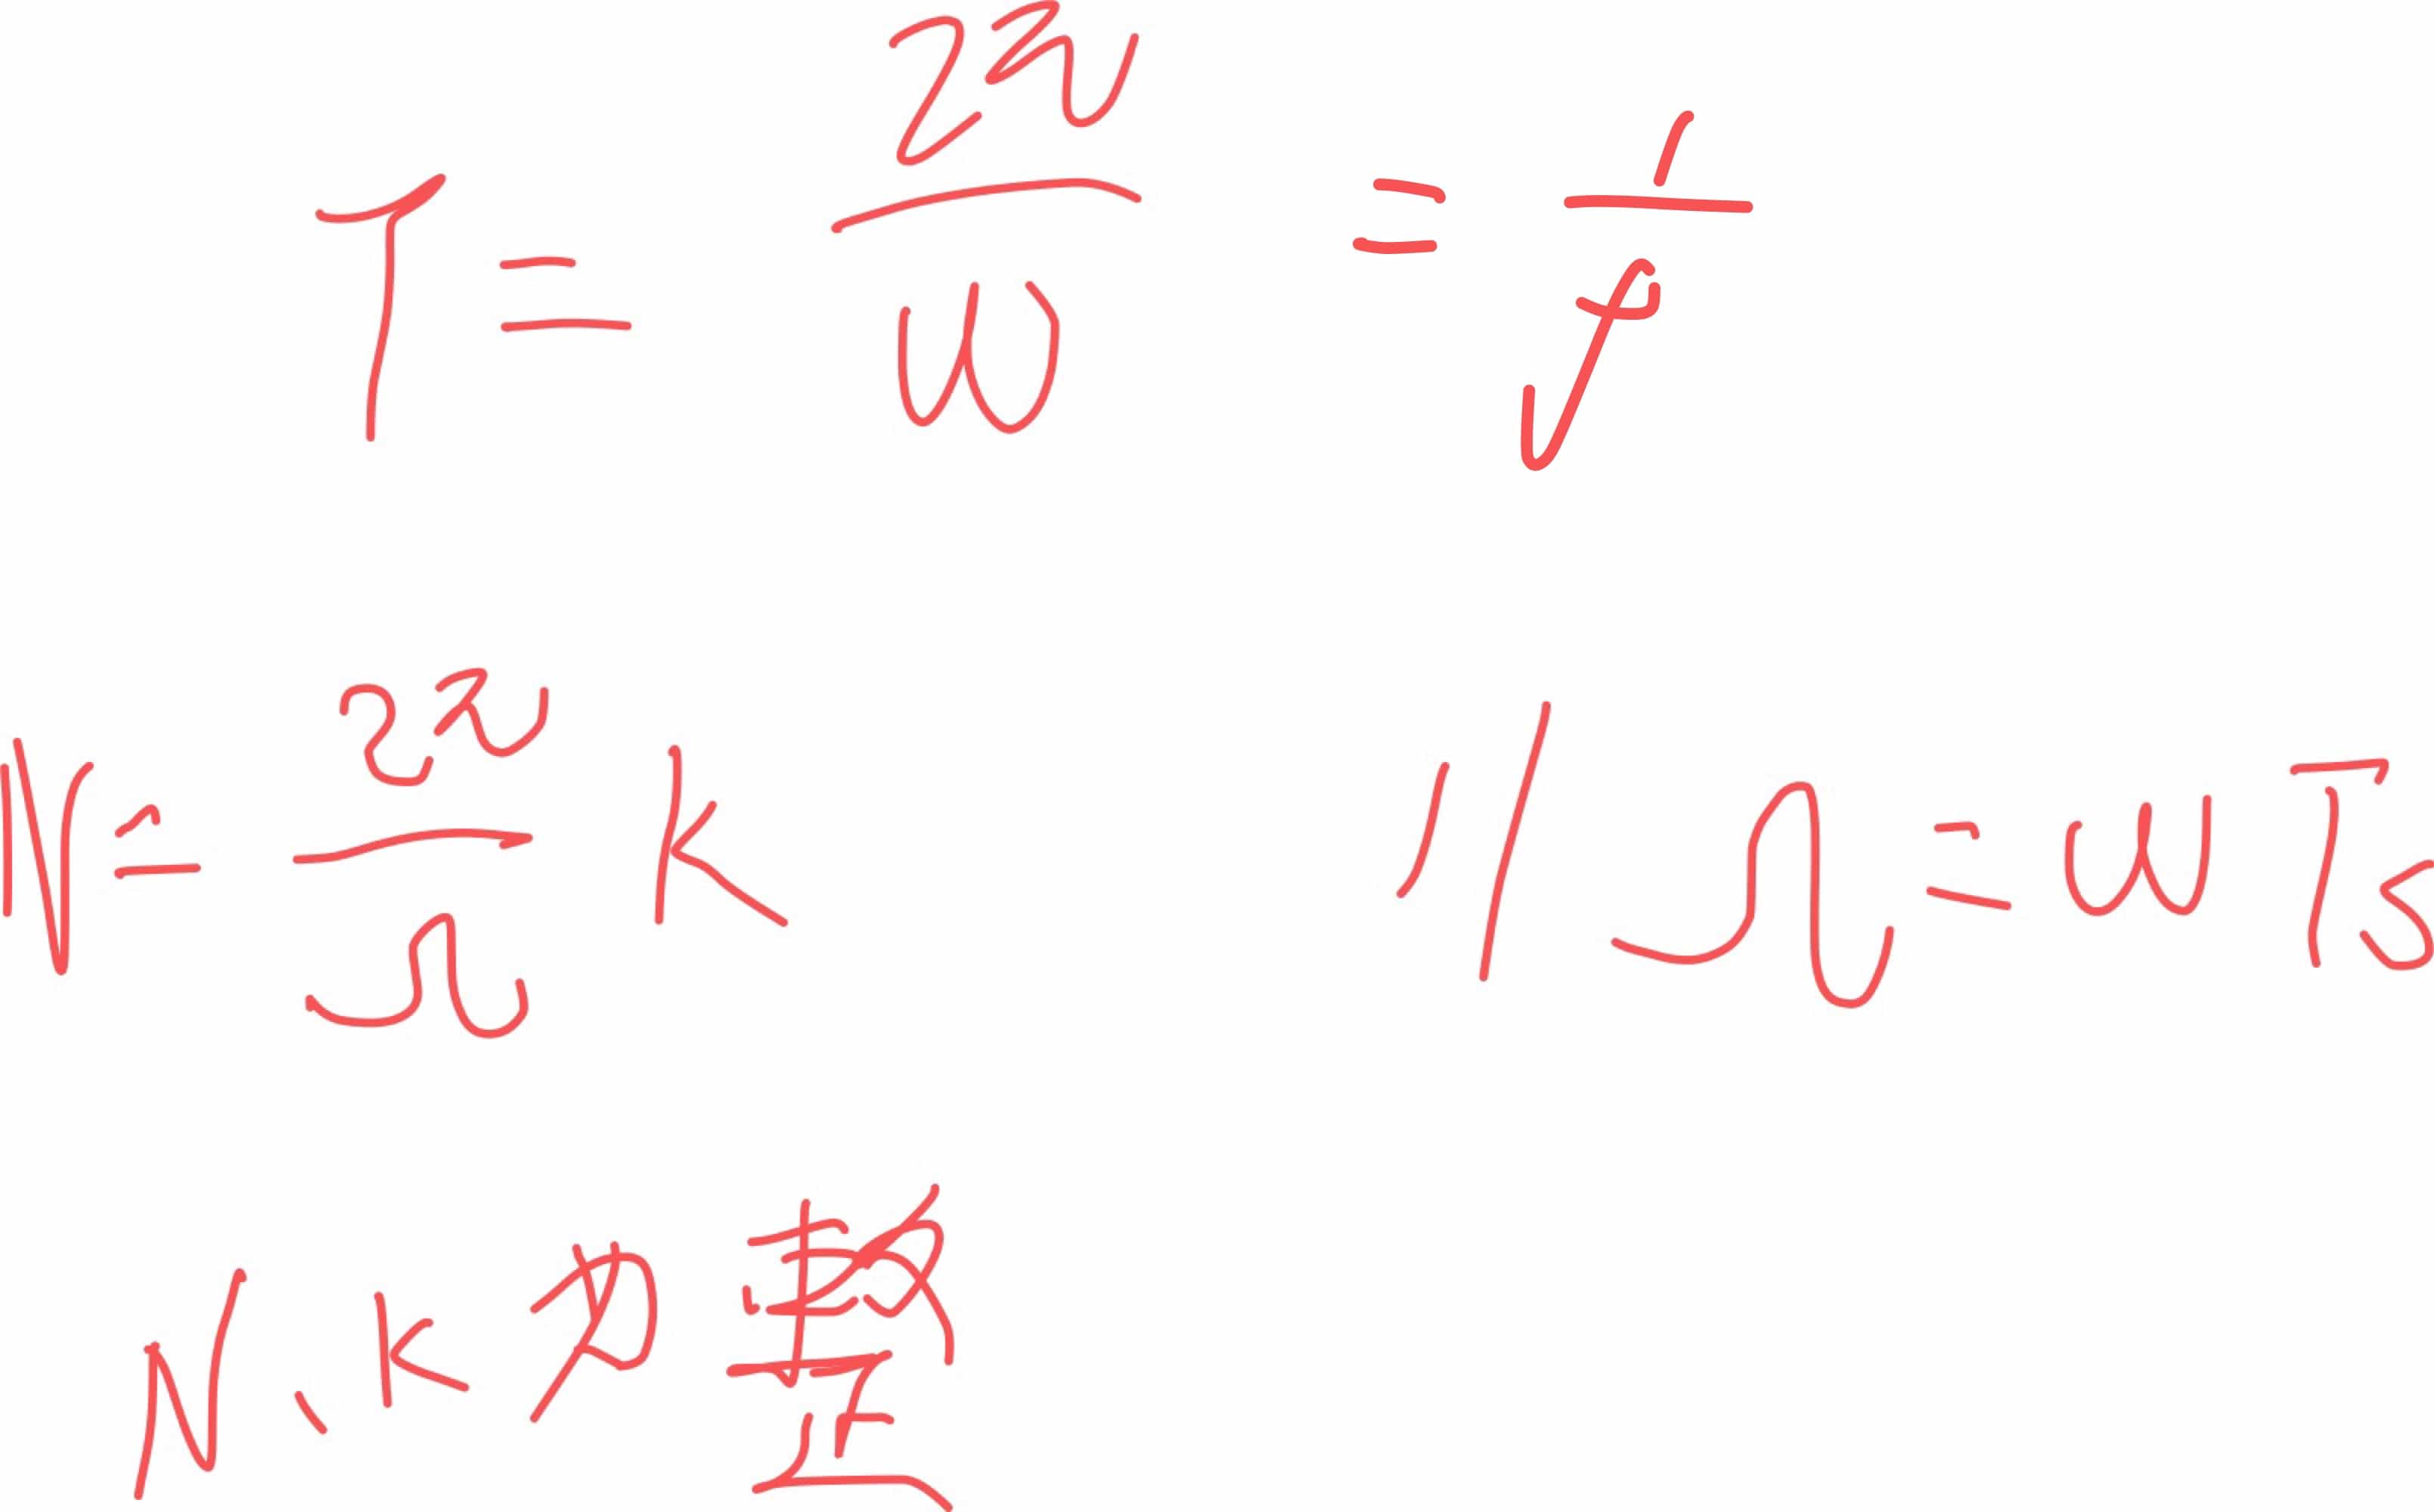 T = 2π/ω = 1/f
N = 2π/Ω k // Ω = ωTs
N、k 为整